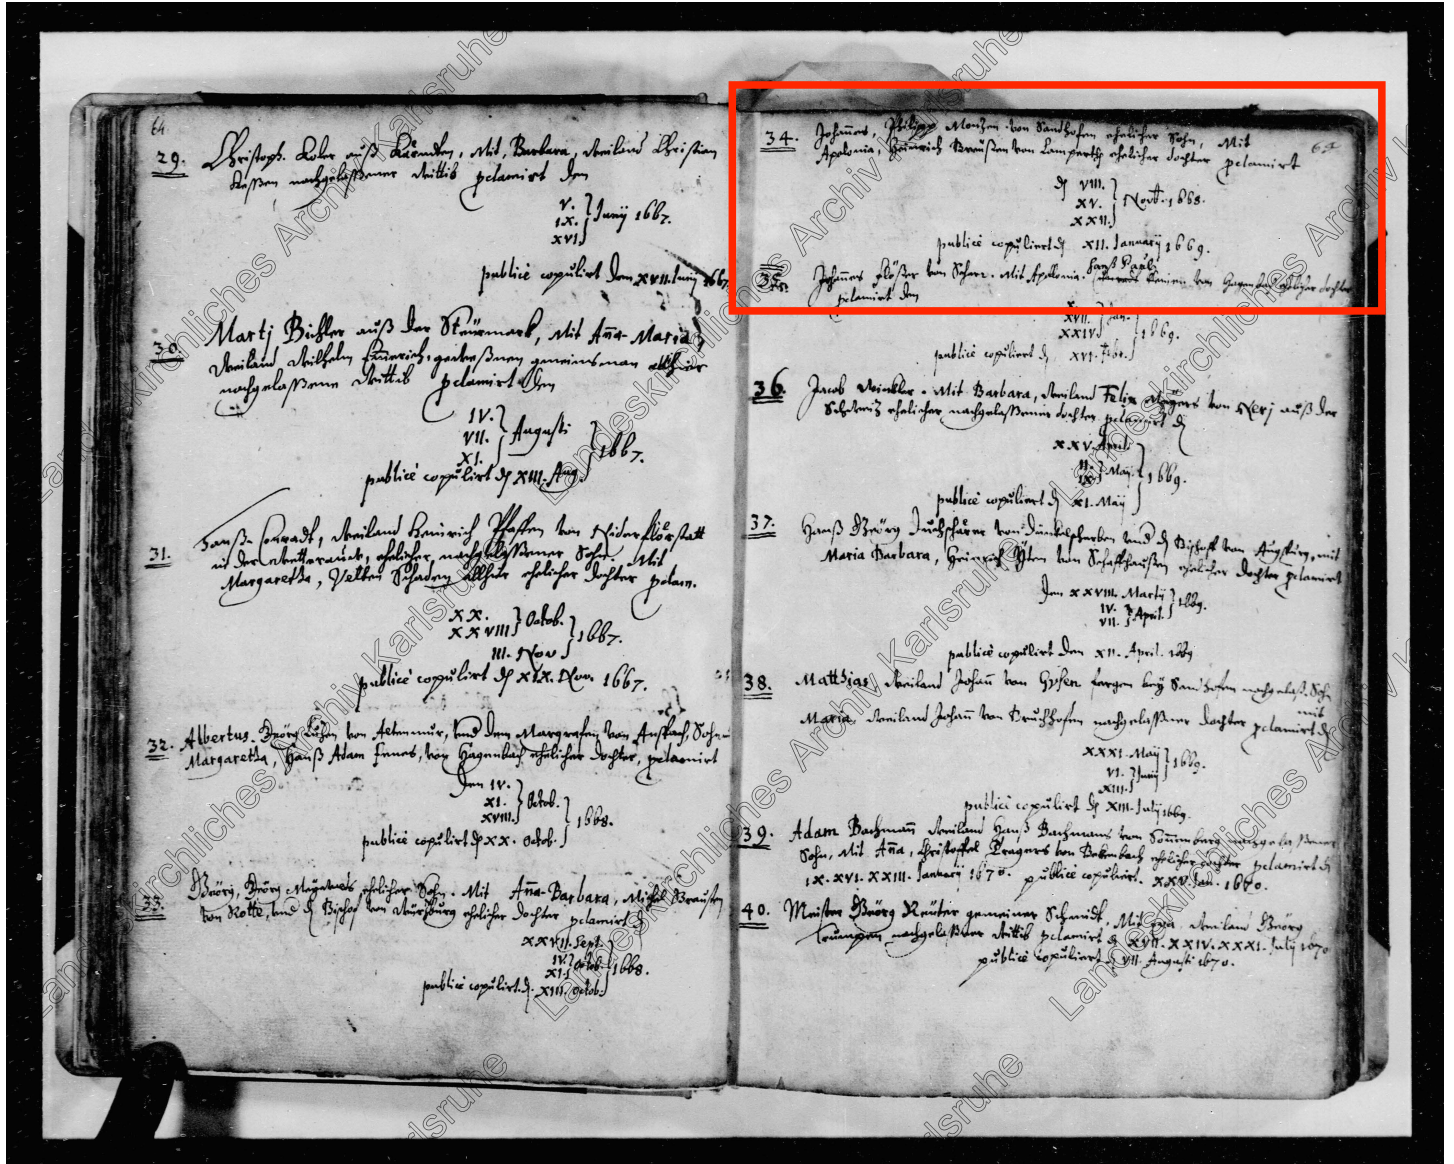 64
29. Christoph. Koler auß Kärndten, Mit, Barbara, Weiland Christian
nachgelaßener Wittib pclamirt den
V.
IX. } Junij 1667.
XVI.
publicè copulirt den XVII. Junij 1667.
30. Martj Bichler auß der Steürmark, Mit Anna-Maria,
Weiland Wilhelm Emerich, geweßnen gemeinsman allhier
nachgelaßene Wittib pclamirt den
IV.
VII. } Augusti } 1667.
XI.
publicè copulirt dē XIII. Aug.
31. Hanß Conradt, Weiland Heinrich Pfaffen von Niderflörstatt
in der Wetteraw, ehelicher nachgelaßener Sohn Mit
Margaretha, Velten Schaden allhier ehelicher dochter pclam.
XX. } Octob.
XXVIII } 1667.
III. Nov
publicè copulirt dē XIX. Nov. 1667.
32. Albertus. Geörg von Altenmur, und dem Margrafen von Anspach, Sohn
Margaretha, Hanß Adam von Hagenbach ehelicher dochter, pclamirt
Den IV.
XI. } Octob. } 1668.
XVIII.
publicè copulirt dē XX. Octob.
33. Geörg, Geörg ehelicher Sohn. Mit Anna-Barbara, Michel Braußen
von Rotte, und dē Bischof von Würtzburg ehelicher dochter pclamirt dē
XXVII. Sept.
IV. } Octob. } 1668.
XI.
publicè copulirt. dē. XIII. Octob.
64
34. Johannes, Philipp Montzen von Sandhofen ehelicher Sohn, Mit
Apolonia, Heinrich Breußen von Lamperth ehelicher dochter pclamirt
dē VIII.
XV. } Novb. 1668.
XXII.
publicè copuliert dē XII. Januarij 1669.
35. Johannes von Scharr. Mit Apolonia. Hanß Pauli
von ehelicher dochter
pclamirt den
X
XVII. } Jan. } 1669.
XXIV
publicè copuliert dē XVI. Feb.
36. Jacob Winkler. Mit Barbara, Weiland Felix Meÿers von auß der
Schweiz ehelicher nachgelaßener dochter pclamirt dē
XXV. April.
II. } Maij } 1669.
IX.
publicè copuliert dē XI. Maij
37. Hanß Geörg von Dünkelscherben und dē Bischoff von Augspurg, mit
Maria Barbara, Heinrich von Schaffhaußen ehelicher dochter pclamirt
Den XXVIII. Martij
IV. } April. } 1669.
VII.
publicè copulirt den XII. April. 1669
38. Matthias Weiland Johann von bey Sandhofen nachgelaß. Sohn
mit
Maria, Weiland Johann von Bruchhofen nachgelaßner dochter pclamirt dē
XXXI. Maij
VI. } Junij } 1669.
XIII.
publicè copulirt dē XIII. Julij 1669.
39. Adam Bachmann Weiland Hanß Bachmans von Sonnenberg nachgelaßener
Sohn, Mit Anna, Christoffel von ehelicher dochter pclamirt dē
IX. XVI. XXIII. Januarij 1670. publicè copuliert. XXV. Jan. 1670.
40. Meister Geörg Reuter gemeiner Schmidt. Mit Eva. Weiland Geörg
nachgelaßner Wittib pclamirt dē XVII. XXIV. XXXI. Julij 1670
publicè copuliert dē VII. Augusti 1670.
Landeskirchliches Archiv Karlsruhe